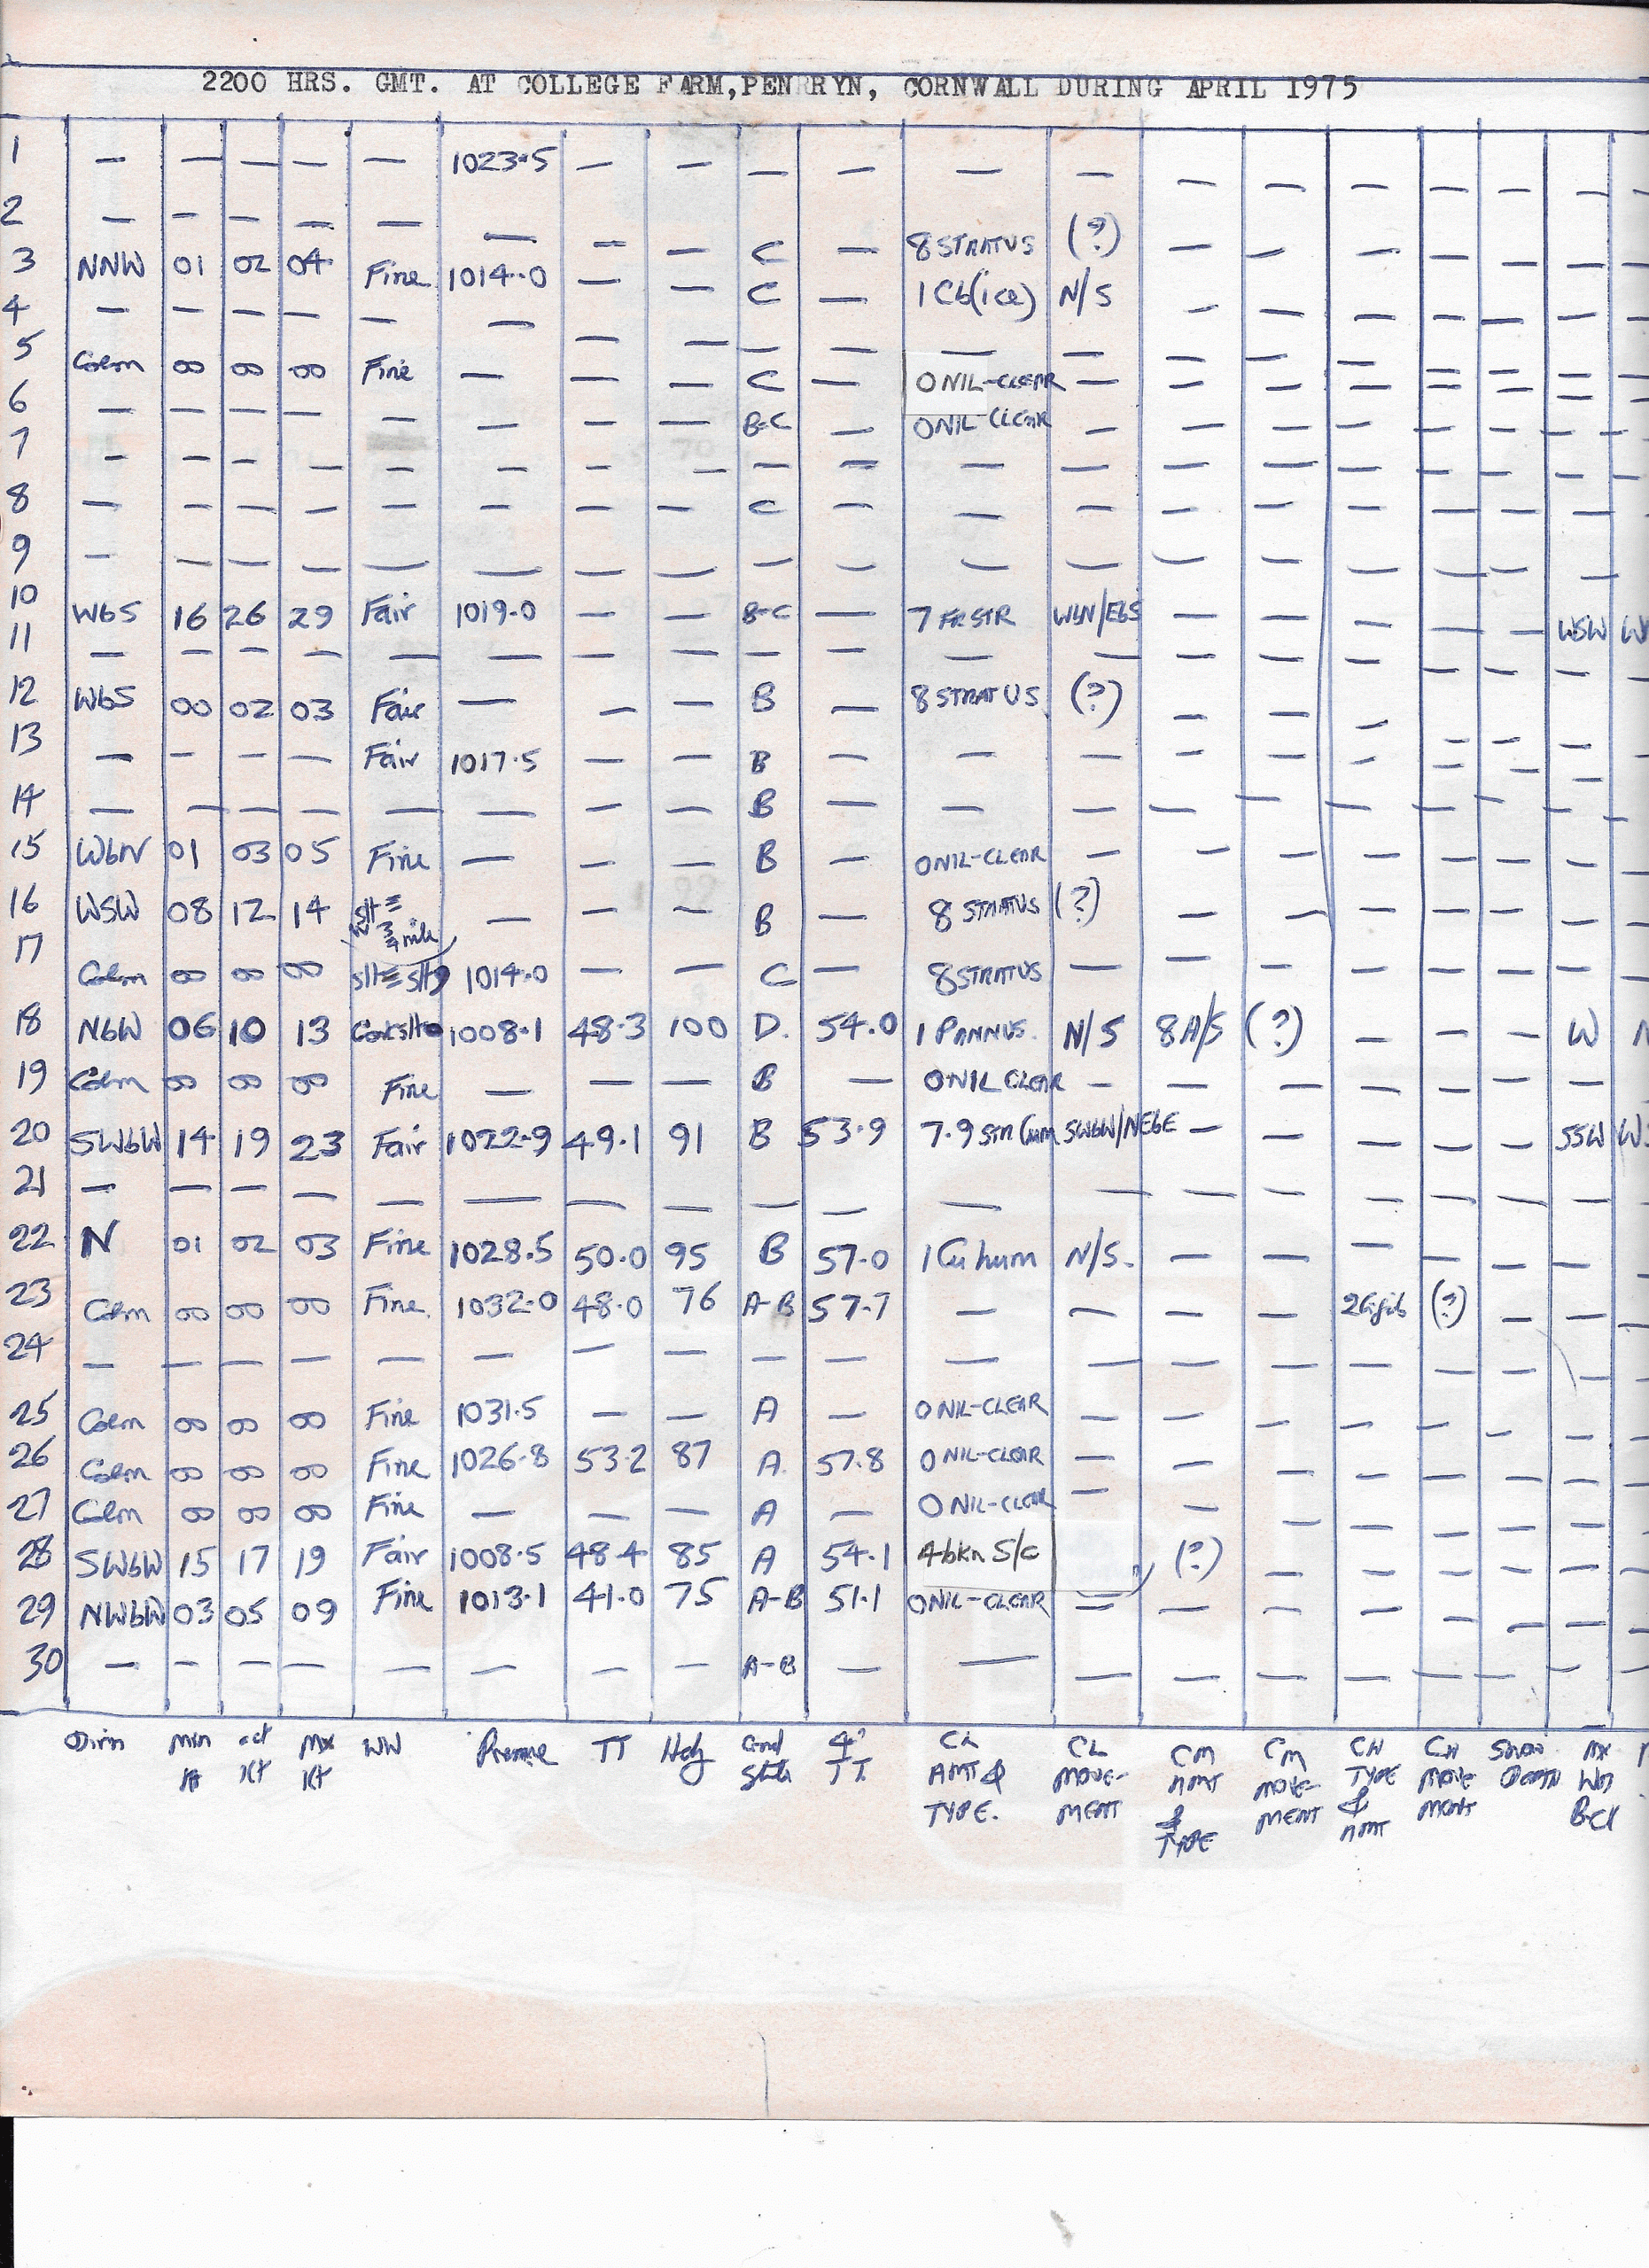 2200 HRS. GMT. AT COLLEGE FARM, PENRRYN, CORNWALL DURING APRIL 1975
1 — — — — — 1023.5 — — — — — — — — — — — —
2 — — — — — — — — C — 8 STRATUS (?) — — — — — —
3 NNW 01 02 04 Fine 1014.0 — — C — 1 Cb(ice) N/S — — — — — —
4 — — — — — — — — — — — — — — — — — —
5 Calm 00 00 00 Fine — — — C — 0 NIL-CLEAR — — — — — — —
6 — — — — — — — — B-C — 0 NIL CLEAR — — — — — — —
7 — — — — — — — — — — — — — — — — — —
8 — — — — — — — — C — — — — — — — — —
9 — — — — — — — — — — — — — — — — — —
10 WbS 16 26 29 Fair 1019.0 — — B-C — 7 FRSTR WbN/EbS — — — — — WSW
11 — — — — — — — — — — — — — — — — — —
12 WbS 00 02 03 Fair — — — B — 8 STRATUS (?) — — — — — —
13 — — — — Fair 1017.5 — — B — — — — — — — — —
14 — — — — — — — — B — — — — — — — — —
15 WbN 01 03 05 Fine — — — B — 0 NIL-CLEAR — — — — — — —
16 WSW 08 12 14 slt ≡ ¾ mile — — — B — 8 STRATUS (?) — — — — — —
17 Calm 00 00 00 slt ≡ slt 1014.0 — — C — 8 STRATUS — — — — — — —
18 NbW 06 10 13 1008.1 48.3 100 D. 54.0 1 PANNUS. N/S 8 A/S (?) — — — W
19 Calm 00 00 00 Fine — — — B — 0 NIL CLEAR — — — — — — —
20 SWbW 14 19 23 Fair 1022.9 49.1 91 B 53.9 7.9 Str Cum SWbW/NEbE — — — — — SSW
21 — — — — — — — — — — — — — — — — — —
22 N 01 02 03 Fine 1028.5 50.0 95 B 57.0 1 Cu hum N/S. — — — — — —
23 Calm 00 00 00 Fine. 1032.0 48.0 76 A-B 57.7 — — — — (?) — —
24 — — — — — — — — — — — — — — — — — —
25 Calm 00 00 00 Fine 1031.5 — — A — 0 NIL-CLEAR — — — — — — —
26 Calm 00 00 00 Fine 1026.8 53.2 87 A. 57.8 0 NIL-CLEAR — — — — — — —
27 Calm 00 00 00 Fine — — — A — 0 NIL-CLEAR — — — — — — —
28 SWbW 15 17 19 Fair 1008.5 48.4 85 A 54.1 4 bkn S/c (?) — — — — —
29 NWbW 03 05 09 Fine 1013.1 41.0 75 A-B 51.1 0 NIL-CLEAR — — — — — — —
30 — — — — — — — — A-B — — — — — — — — —
Dirn Min act Mx WW Pressure TT Hdy Gnd 4" CL CL CM CM CH CH Snow Mx
Kt Kt Kt State TT. AMT & MOVE- AMT MOVE- TYPE MOVE Depth Wn
TYPE. MENT & MENT & MENT Bcl
TYPE AMT